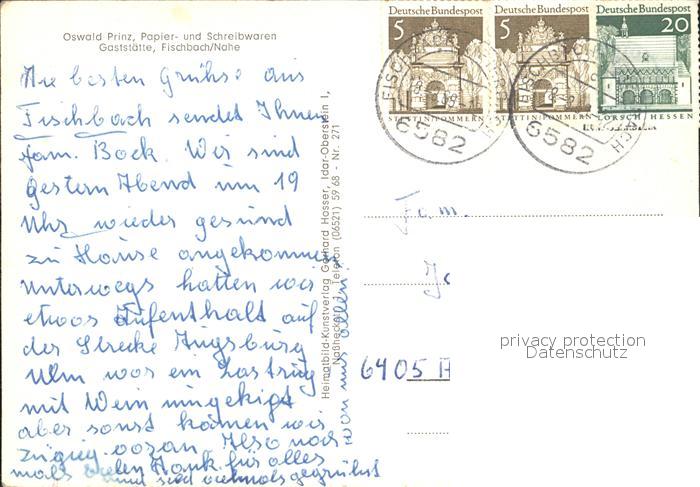 Oswald Prinz, Papier- und Schreibwaren
Gaststätte, Fischbach/Nahe
Die besten Grühse aus
Fischbach sendet Ihnen
fam. Bock. Wir sind
gestern Abend um 19
Uhr wieder gesund
zu Hause angekommen
unterwegs hatten wir
etwas Aufenthalt auf
der Strecke Augsburg
Ulm war ein Lastzug
mit Wein umgekipt
aber sonst kamen wir
zügig voran. Also noch
mals vielen Dank für alles
und seid vielmals gegrühst
von uns allen.
Heimatbild-Kunstverlag Gerhard Hosser, Idar-Oberstein I,
Telefon (06521) 59 68 - Nr. 271
Deutsche Bundespost
5
STETTIN/POMMERN
Deutsche Bundespost
5
STETTIN/POMMERN
Deutsche Bundespost
20
LORSCH/HESSEN
6582
6582
Fam.
6405
privacy protection
Datenschutz